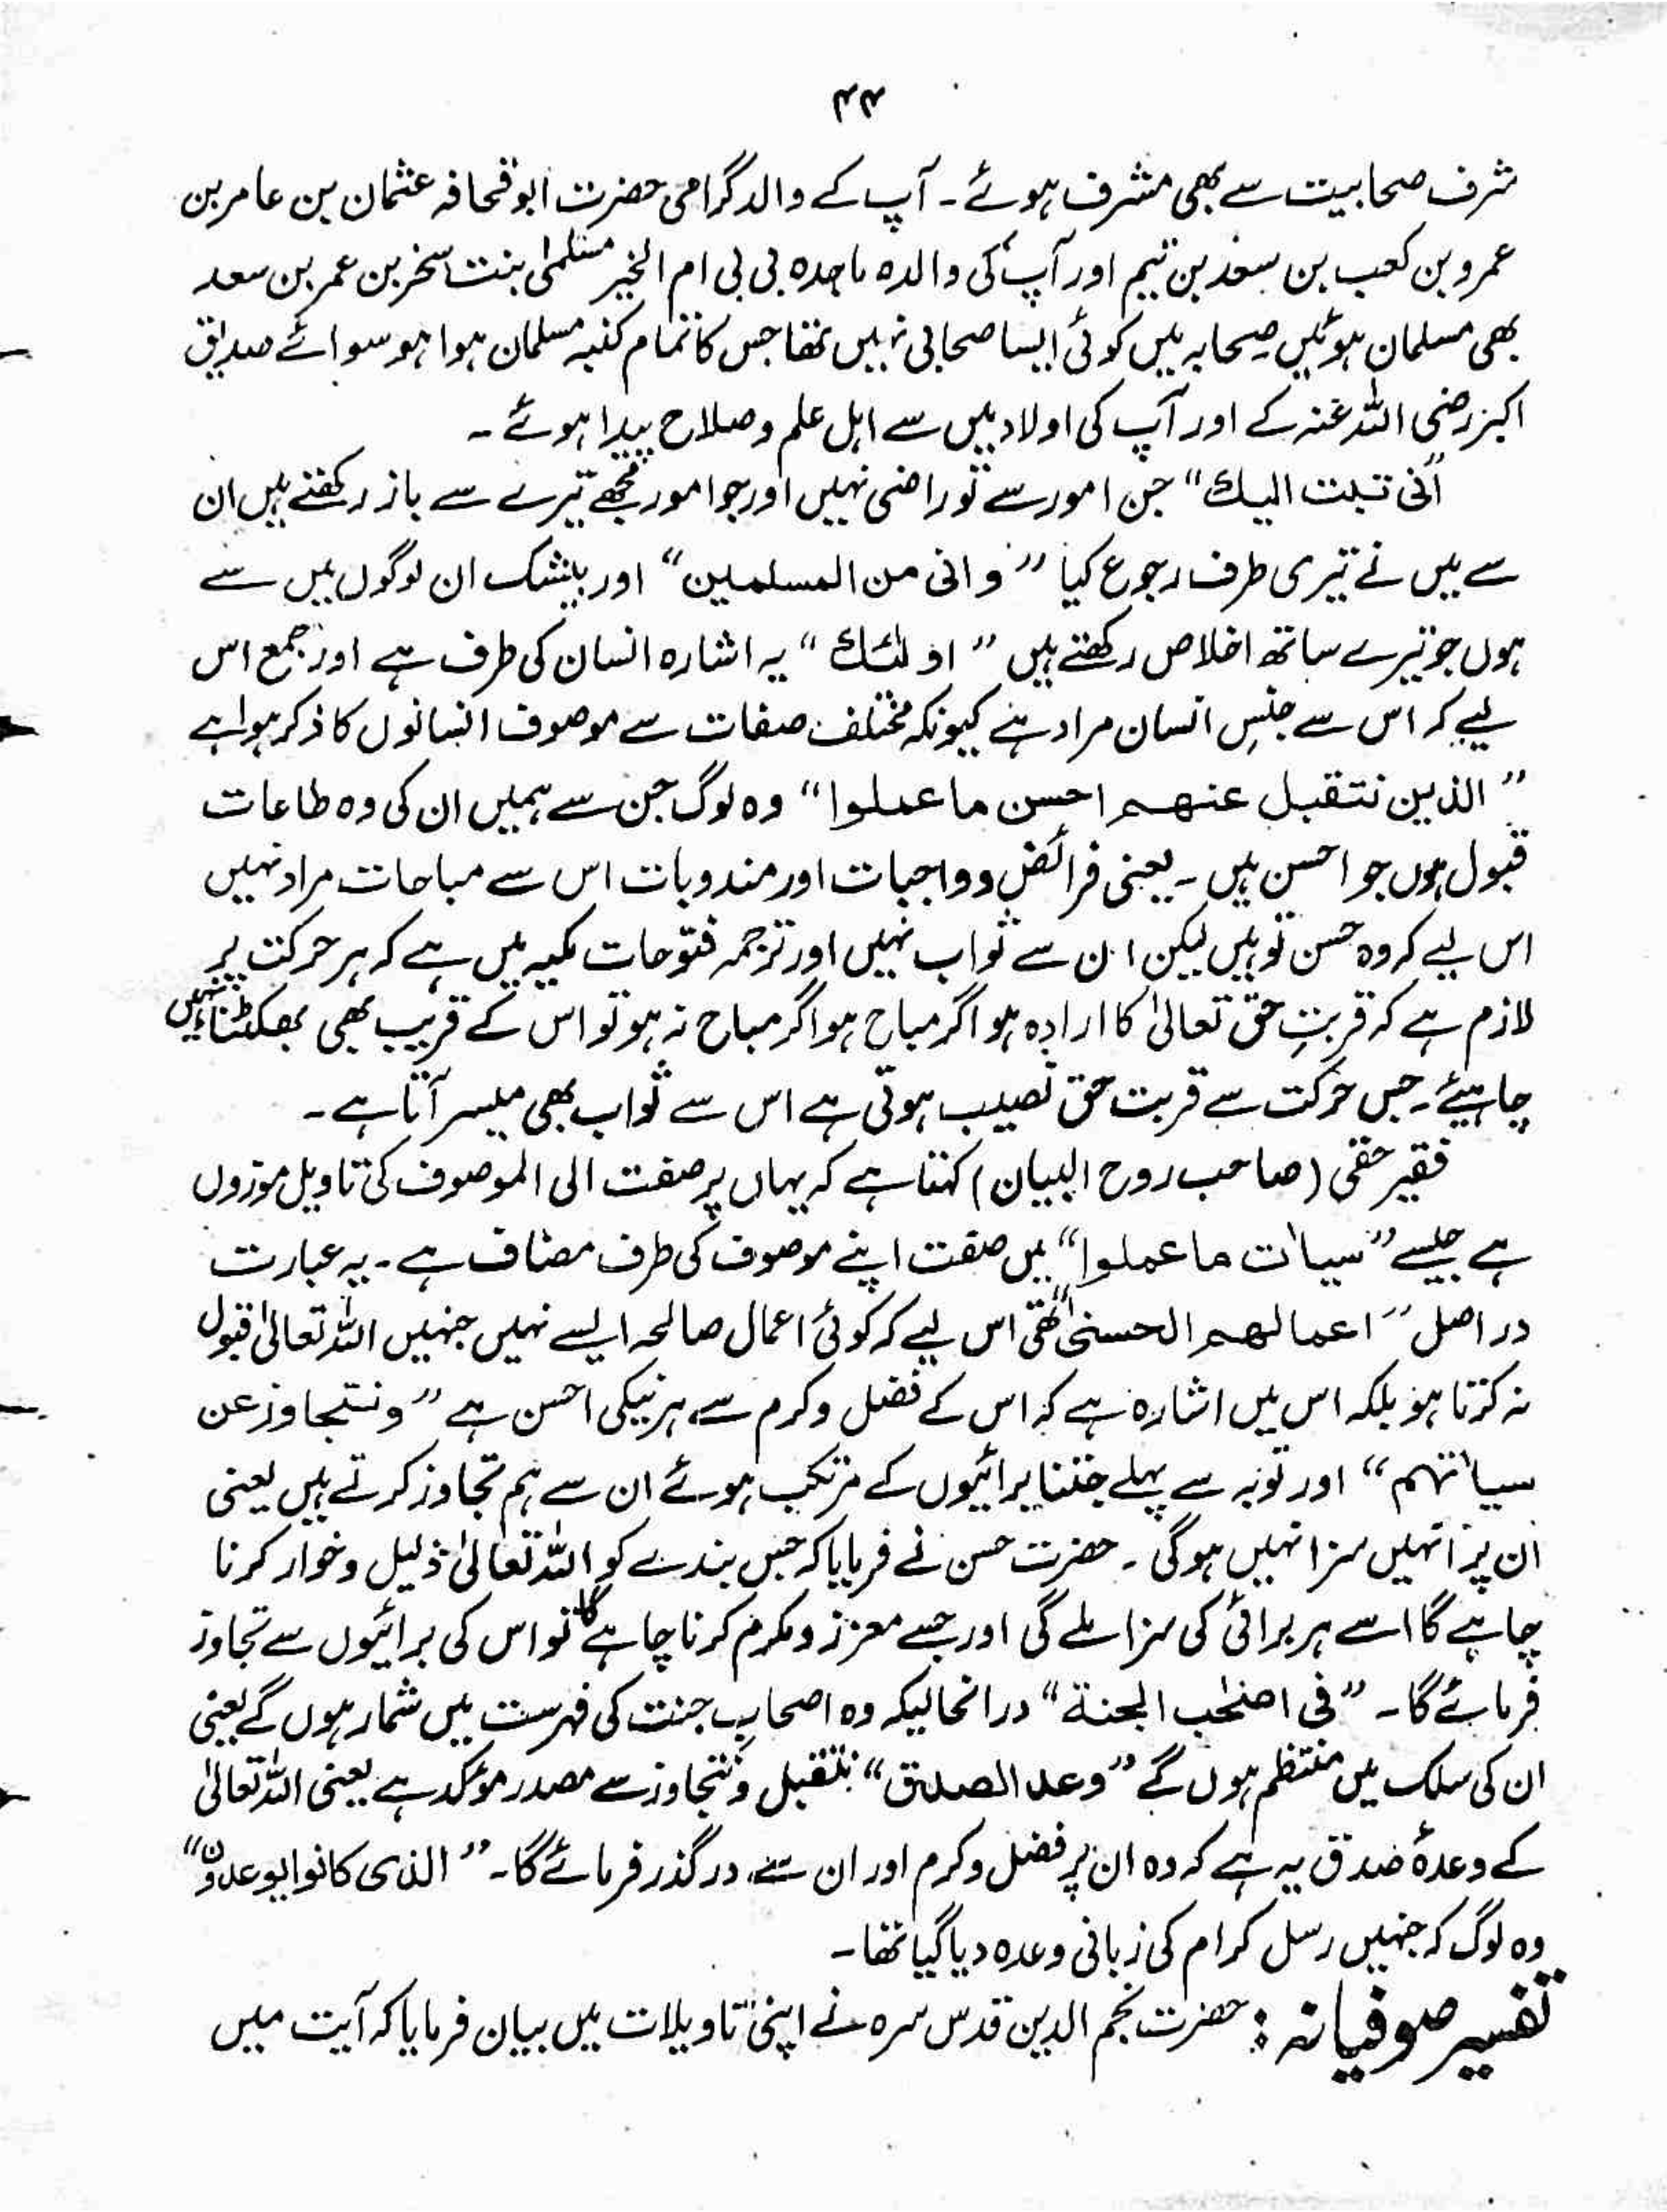 ۴۴
شرف صحابیت سے بھی مشرف ہوئے۔ آپ کے والد گرامی حضرت ابو قحافہ عثمان بن عامر بن
عمرو بن کعب بن سعد بن تیم اور آپ کی والدہ ماجدہ بی بی ام الخیر سلمیٰ بنت سخر بن عمر بن سعد
بھی مسلمان ہوئیں صحابہ میں کوئی ایسا صحابی نہیں تھا جس کا تمام کنبہ مسلمان ہوا ہو سوائے صدیق
اکبر رضی اللہ عنہ کے اور آپ کی اولاد میں سے اہل علم و صلاح پیدا ہوئے۔
"انی تبت الیك" جن امور سے تو راضی نہیں اور جو امور مجھے تیرے سے باز رکھتے ہیں ان
سے میں نے تیری طرف رجوع کیا "وانی من المسلمین" اور بیشک ان لوگوں میں سے
ہوں جو تیرے ساتھ اخلاص رکھتے ہیں "اولٰئك" یہ اشارہ انسان کی طرف ہے اور جمع اس
لیے کہ اس سے جنسِ انسان مراد ہے کیونکہ مختلف صفات سے موصوف انسانوں کا ذکر ہوا ہے
"الذین نتقبل عنھم احسن ما عملوا" وہ لوگ جن سے ہمیں ان کی وہ طاعات
قبول ہوں جو احسن ہیں۔ یعنی فرائض و واجبات اور مندوبات اس سے مباحات مراد نہیں
اس لیے کہ وہ حسن تو ہیں لیکن ان سے ثواب نہیں اور ترجمہ فتوحات مکیہ میں ہے کہ ہر حرکت پر
لازم ہے کہ قربتِ حق تعالیٰ کا ارادہ ہو اگر مباح ہو اگر مباح نہ ہو تو اس کے قریب بھی بھکٹنا نہیں
چاہیئے۔ جس حرکت سے قربت حق نصیب ہوتی ہے اس سے ثواب بھی میسر آتا ہے۔
فقیر حقی (صاحب روح البیان) کہتا ہے کہ یہاں پر صفت الی الموصوف کی تاویل موزوں
ہے جیسے "سیاٰت ما عملوا" میں صفت اپنے موصوف کی طرف مضاف ہے۔ یہ عبارت
در اصل "اعمالھم الحسنیٰ" تھی اس لیے کہ کوئی اعمال صالحہ ایسے نہیں جنہیں اللہ تعالیٰ قبول
نہ کرتا ہو بلکہ اس میں اشارہ ہے کہ اس کے فضل و کرم سے ہر نیکی احسن ہے "ونتجاوز عن
سیاٰتھم" اور توبہ سے پہلے جتنا برائیوں کے مرتکب ہوئے ان سے ہم تجاوز کرتے ہیں یعنی
ان پر انہیں سزا نہیں ہوگی۔ حضرت حسن نے فرمایا کہ جس بندے کو اللہ تعالیٰ ذلیل و خوار کرنا
چاہے گا اسے ہر برائی کی سزا ملے گی اور جسے معزز و مکرم کرنا چاہے گا تو اس کی برائیوں سے تجاوز
فرمائے گا۔ "فی اصحٰب الجنۃ" در انحالیکہ وہ اصحاب جنت کی فہرست میں شمار ہوں گے یعنی
ان کی سلک میں منتظم ہوں گے "وعد الصدق" نتقبل و نتجاوز سے مصدر مؤکد ہے یعنی اللہ تعالیٰ
کے وعدۂ صدق یہ ہے کہ وہ ان پر فضل و کرم اور ان سے درگذر فرمائے گا۔ "الذی کانوا یوعدون"
وہ لوگ کہ جنہیں رسل کرام کی زبانی وعدہ دیا گیا تھا۔
تفسیر صوفیانہ : حضرت نجم الدین قدس سرہ نے اپنی تاویلات میں بیان فرمایا کہ آیت میں